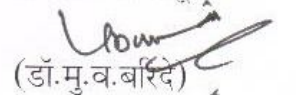 (डॉ.मु.व.बर्शिदे)